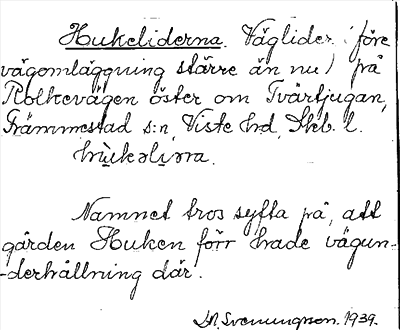 Hukeliderna. Väglider (före
vägomläggning större än nu) på
Rolkevägen öster om Tvärtjugan,
Främmestad s:n, Viste hd, Skb. l.
Namnet tros syfta på, att
gården Huken förr hade vägun-
-derhållning där.
Svenungson. 1939.